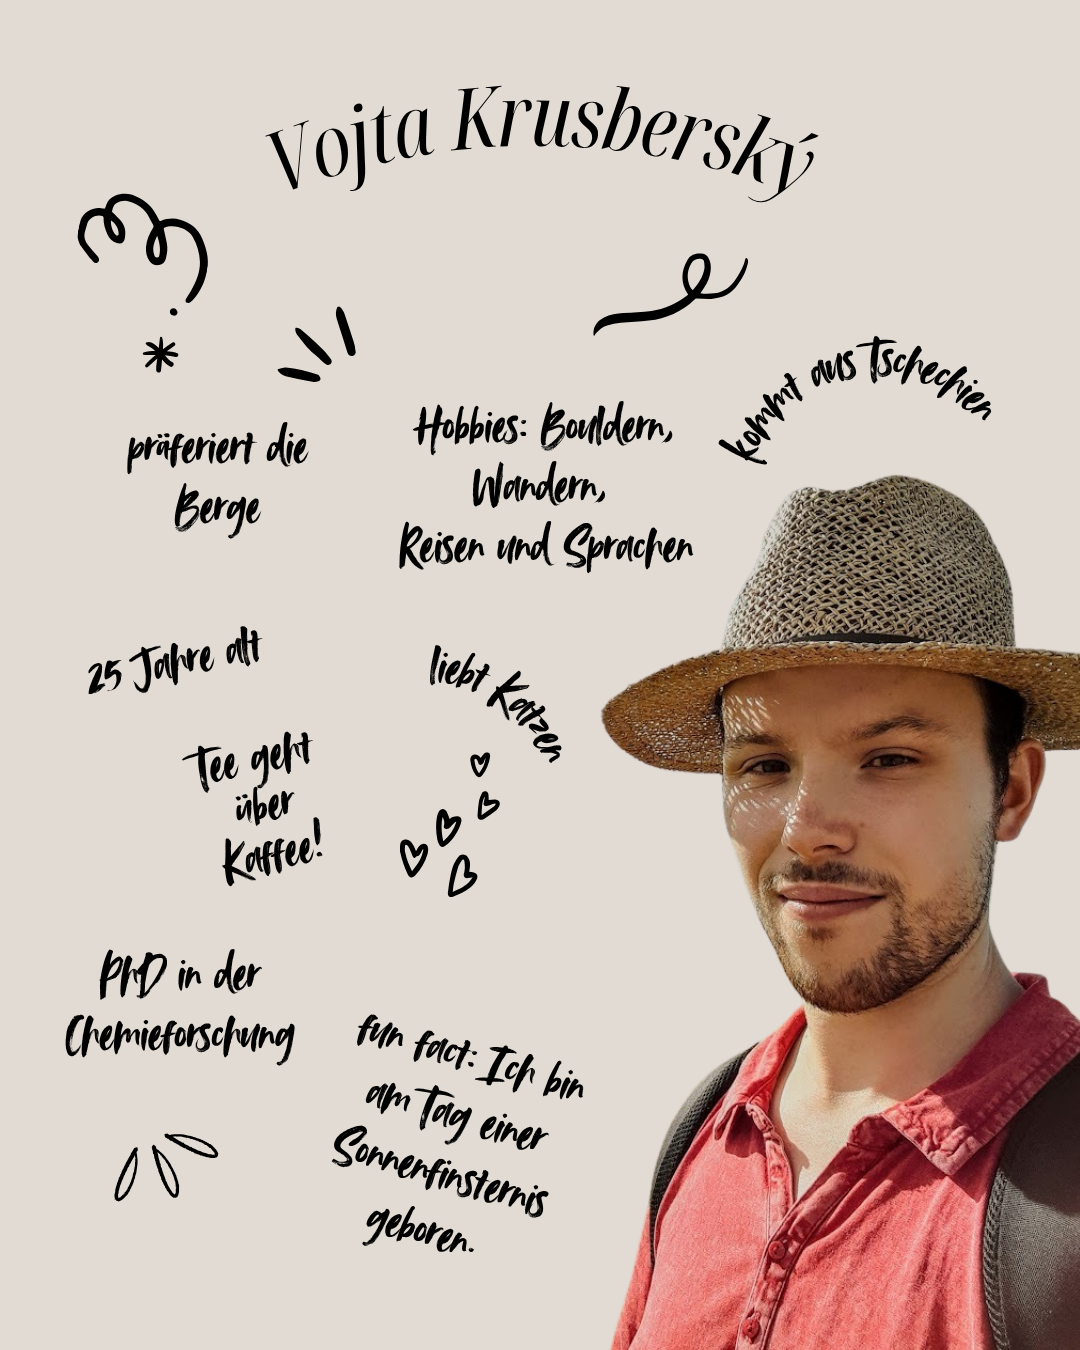 Vojta Krusberský
kommt aus Tschechien
präferiert die
Berge
Hobbies: Bouldern,
Wandern,
Reisen und Sprachen
25 Jahre alt
liebt Katzen
Tee geht
über
Kaffee!
PhD in der
Chemieforschung
fun fact: Ich bin
am Tag einer
Sonnenfinsternis
geboren.